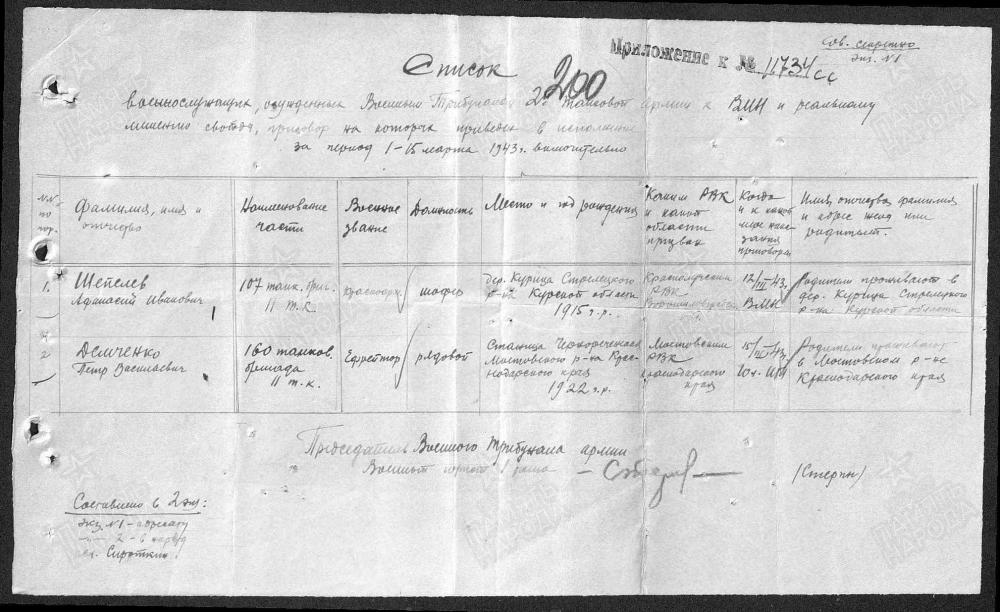 Сов. секретно
Экз. N1
Приложение к № 11734сс
Список
200
военнослужащих, осужденных Военным Трибуналом 2й танковой армии к ВМН и реальному
лишению свободы, приговор на которых приведен в исполнение
за период 1-15 марта 1943г. включительно
N.N. по пор.
Фамилия, имя и отчество
Наименование части
Военное звание
Должность
Место и год рождения
Каким РВК и какой области призван
Когда и к какой мере наказания приговорен
Имя, отчество, фамилия и адрес жены или родителей.
1. Шепелев Афанасий Иванович
107 танк. бриг. 11 т.к.
красноарм.
шофер
дер. Курица Стрелецкого р-на Курской области 1915 г.р.
РВК
12/III-43, ВМН
Родители проживают в дер. Курица Стрелецкого р-на Курской области
2 Демченко Петр Васильевич
160 танков. бригада 11 т.к.
Ефрейтор
рядовой
Станица Мостовского р-на Краснодарского края 1922 г.р.
Мостовским РВК Краснодарского края
15/III-43, 10 л. ИТЛ
Родители проживают в Мостовском р-не Краснодарского края
Председатель Военного Трибунала армии
Военный юрист 1 ранга
(Стерин)
Составлено в 2 экз:
экз N1 - адресату
-"- 2 - в наряд
исп. Сироткин